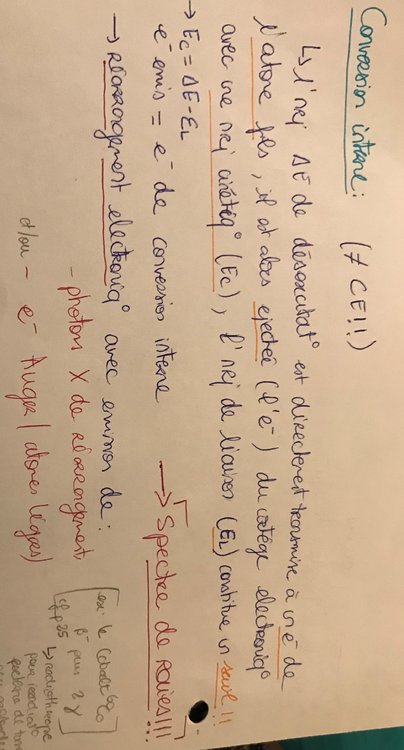 Conversion interne : (≠ CE !!)
↳ l'nrj ΔE de désexcitat° est directement transmise à un e⁻ de
l'atome fils, il est alors éjectée (l'e⁻) du cortège électroniq°
avec une nrj cinétiq° (Ec), l'nrj de liaison (EL) constitue un seuil !!
→ Ec = ΔE - EL
e⁻ émis = e⁻ de conversion interne → Spectre de raies !!!!
→ Réarrangement electroniq° avec emission de :
- photons X de réarrangement
et/ou - e⁻ Auger (atomes légers)
ex : le Cobalt 60 Co
β⁻ puis 2 γ
cf p25
↳ radiothérapie
pour irradiat°